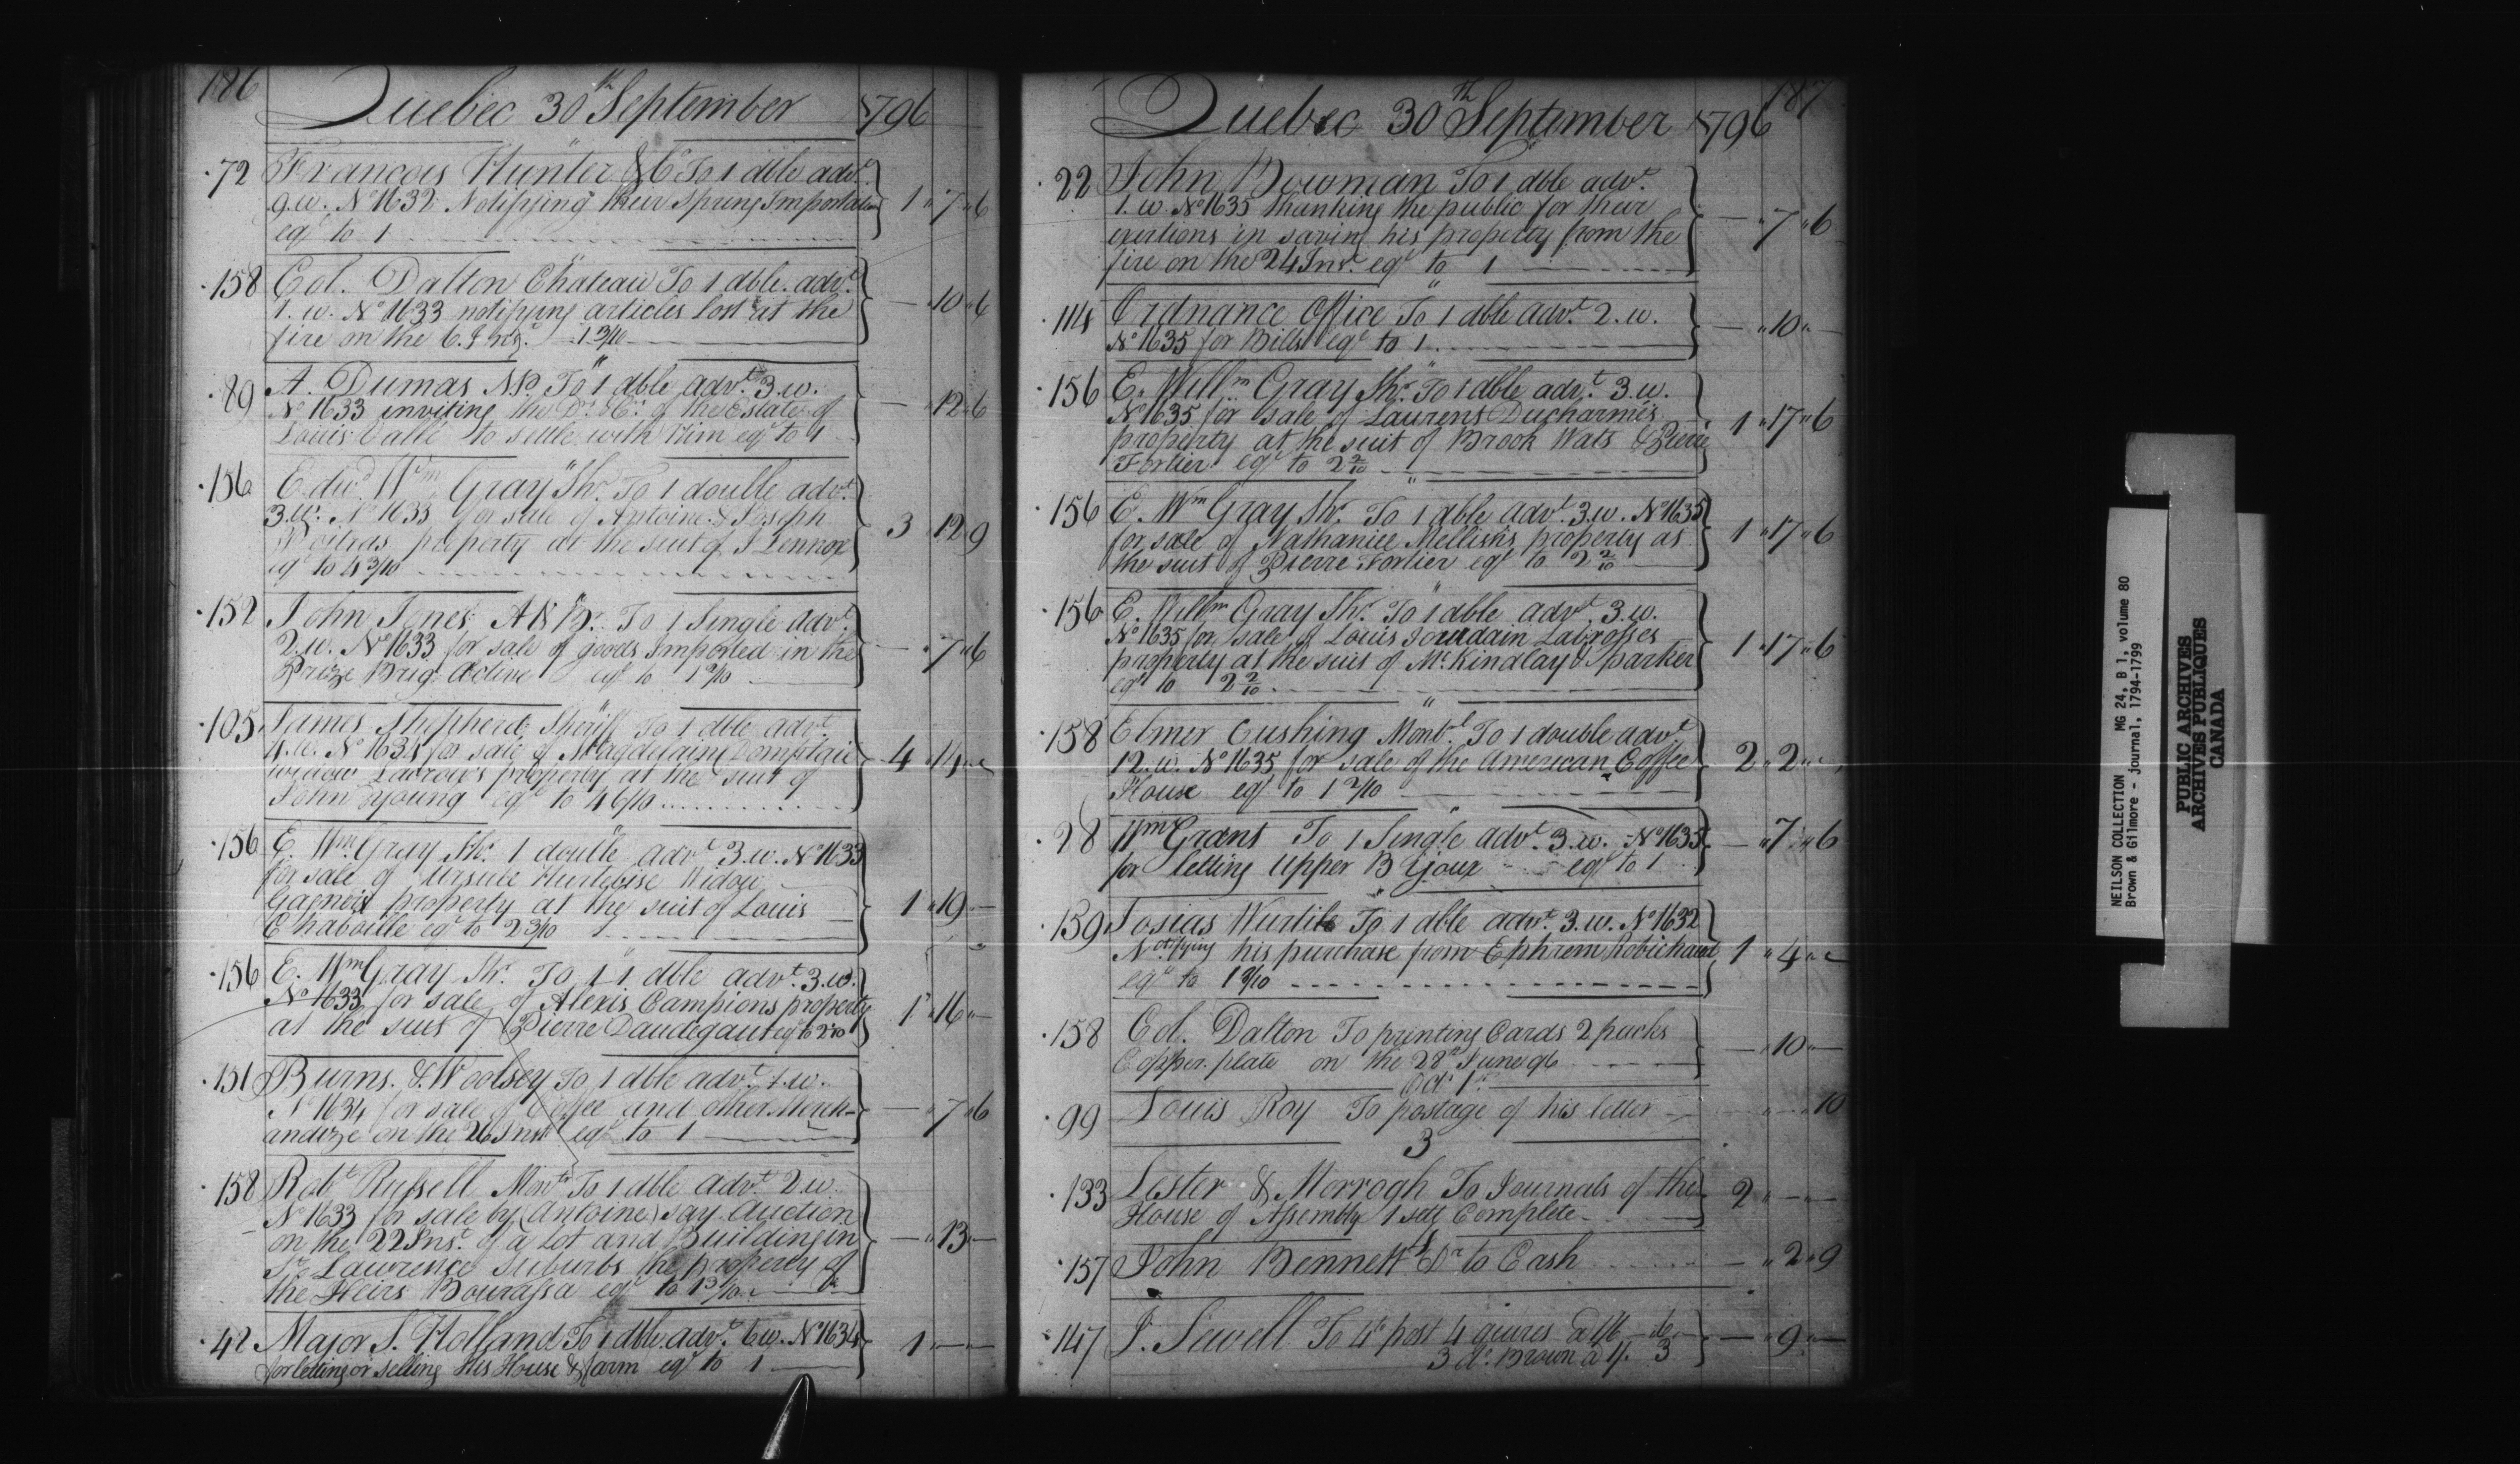 186
Quebec 30th September 1796
72 Francois Hunter & Co To 1 dble advt.
9.w. No 1632 Notifying their Spring Importation 1 " 7 " 6
eql to 1
158 Col. Dalton Chateau To 1 dble. advt.
1. w. No 1633 notifying articles lost at the — " 10 " 6
fire on the 6. Inst. 1 3/10
89 A. Dumas N.P. To 1 dble advt. 3.w.
No 1633 inviting the Drs. & Crs. of the Estate of — " 12 " 6
Louis Vallé to settle with him eql to 1
156 Edwd Wm Gray Shr. To 1 double advt.
3.w. No 1633 for sale of Antoine & Joseph 3 " 12 " 9
Poitras property at the suit of J Lennox
eql to 4 3/10
152 John Jones A & B. To 1 Single advt.
2.w. No 1633 for sale of goods Imported in the — " 7 " 6
Prize Brig. Active eql to 1 2/10
105 James Shepherd Sheriff To 1 dble advt
4.w. No 1634 for sale of Magdelaine 4 " 14 " —
widow Ladroies property at the suit of
John Young eql to 4 6/10
156 E. Wm. Gray Shr. 1 double advt 3.w. No 1633
for sale of Ursule Hurtebise Widow
Gagniers property at the suit of Louis 1 " 19 —
Chaboille eql to 2 3/10
156 E. Wm Gray Shr. To 1 dble advt. 3.w.
No 1633 for sale of Alexis Campions property 1 " 16 " —
at the suit of Pierre Daudegaut eql to 2 1/10
151 Burns. & Woolsey To 1 dble advt. 1.w.
No 1634 for sale of Coffee and other Merch- — " 7 " 6
andize on the 26 Inst eql to 1
158 Robt Russell Mont. To 1 dble advt. 2.w.
No 1633 for sale by (Antoine) say Auction
on the 22 Inst. of a lot and Building in — " 13 —
St. Lawrence Suburbs the property of
the Heirs Bourassa eql to 1 3/10
42 Major S. Holland To 1 dble. advt. 6w. No 1634 1 " — " —
for letting or selling His House & farm eql to 1
187
Quebec 30th September 1796
22 John Bowman To 1 dble advt.
1. w. No 1635 thanking the public for their — " 7 " 6
exertions in saving his property from the
fire on the 24 Inst. eql to 1
114 Ordnance Office To 1 dble advt. 2.w. — " 10 " —
No 1635 for Bills eql to 1
156 E. Willm Gray Shr. To 1 dble advt. 3.w.
No 1635 for sale of Laurens Ducharmes 1 " 17 " 6
property at the suit of Brook Wats & Pierre
Fortier eql to 2 2/10
156 E. Wm Gray Shr. To 1 dble advt. 3.w. No 1635
for sale of Nathaniel Mellishs property at 1 " 17 " 6
the suit of Pierre Fortier eql to 2 2/10
156 E. Willm Gray Shr. To 1 dble advt. 3.w.
No 1635 for sale of Louis Jourdain Labrosses
property at the suit of McKindlay & Parker 1 " 17 " 6
eql to 2 2/10
158 Elmer Cushing Montl. To 1 double advt
12.w. No 1635 for sale of the American Coffee 2 " 2 " —
House eql to 1 2/10
28 Wm Grant To 1 Single advt. 3.w. No 1635 — " 7 " 6
for letting Upper Bijour eql to 1
159 Josias Wurtile To 1 dble advt. 3.w. No 1632
Notifying his purchase from Ephrem Robichaud 1 " 4 " —
eql to 1 3/10
158 Col. Dalton To printing Cards 2 packs
Copper plate on the 28th June 96 — " 10 " —
Oct. 1st
99 Louis Roy To postage of his letter — " — " 10
3
133 Lester & Morrogh To Journals of the 2 " — " —
House of Assembly 1 sett Complete
157 John Bennett Dr to Cash — " 2 " 9
147 J. Sewell To 4to post 4 quires @ 1/6 — 6 — " 9 " —
3 do. Brown @ 1/. 3
NEILSON COLLECTION MG 24, B 1, volume 80
Brown & Gilmore - journal, 1794-1799
PUBLIC ARCHIVES
ARCHIVES PUBLIQUES
CANADA